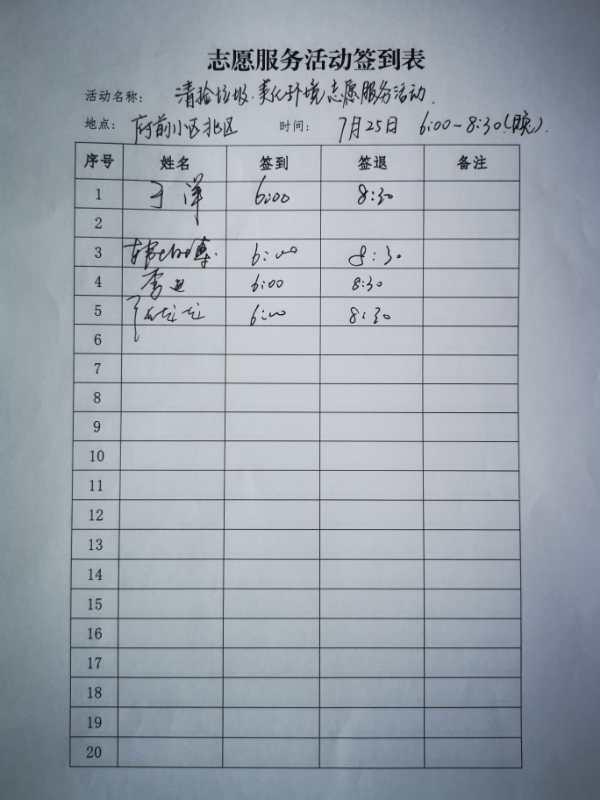 志愿服务活动签到表
活动名称: 清捡垃圾·美化环境志愿服务活动.
地点: 府前小区北区 时间: 7月25日 6:00-8:30(晚).
序号 姓名 签到 签退 备注
1 于洋 6:00 8:30
2
3 6:00 8:30
4 李 6:00 8:30
5 6:00 8:30
6
7
8
9
10
11
12
13
14
15
16
17
18
19
20